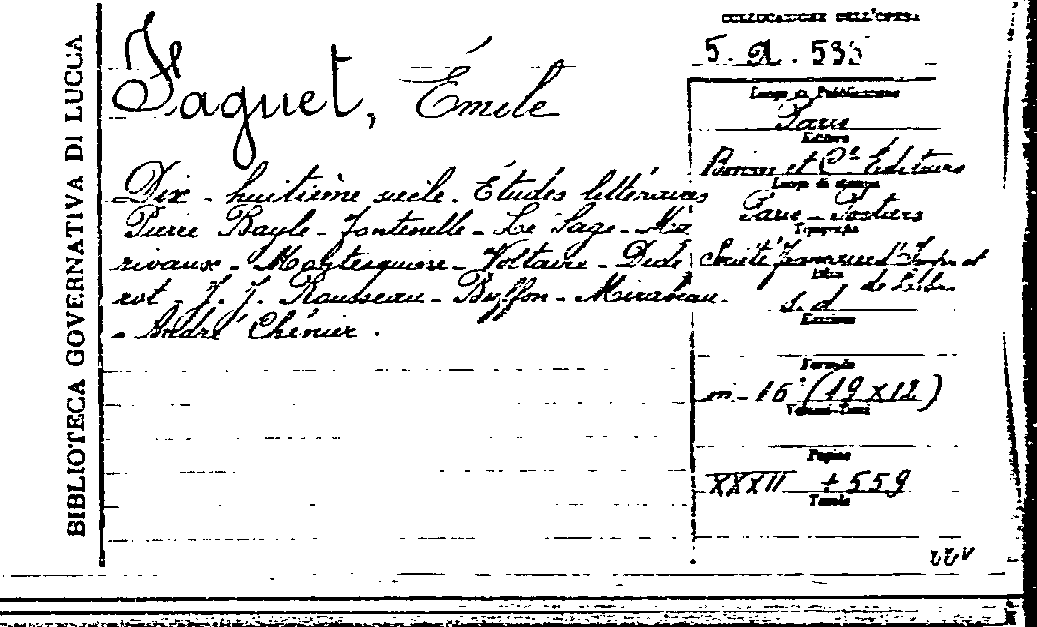 BIBLIOTECA GOVERNATIVA DI LUCCA
Faguet, Émile
Dix-huitième siècle. Études littéraires
Pierre Bayle - Fontenelle - Le Sage - Ma
rivaux - Montesquieu - Voltaire - Dide
rot - J. J. Rousseau - Buffon - Mirabeau
- André Chénier.
COLLOCAZIONE DELL'OPERA
5. 535
Luogo di Pubblicazione
Paris
Editore
et Cie Éditeurs
Luogo di stampa
Paris - Poitiers
Tipografia
Société française d'Impr. et
de Libr.
Data
s. d.
Edizione
Formato
in-16° (19 x 12)
Volumi-Tomi
Pagine
XXXII + 559
Tavole